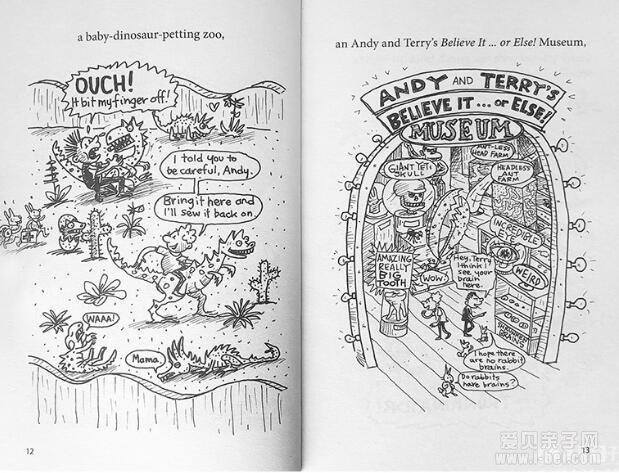 a baby-dinosaur-petting zoo,
OUCH!
It bit my finger off!
I told you to
be careful, Andy.
Bring it here and
I'll sew it back on.
WAAA!
Mama.
12
an Andy and Terry's Believe It ... or Else! Museum,
ANDY AND TERRY'S
BELIEVE IT ... or ELSE!
MUSEUM
GIANT YETI
SKULL
ANT-LESS
HEAD FARM
HEADLESS
ANT
FARM
INCREDIBLE
WEIRD
AMAZING
REALLY
BIG
TOOTH
WOW!
Hey, Terry
I think I
see your
brain
here.
BRAINS
I hope there
are no rabbit
brains.
Do rabbits
have brains?
13
爱贝亲子网
www.i-bei.com